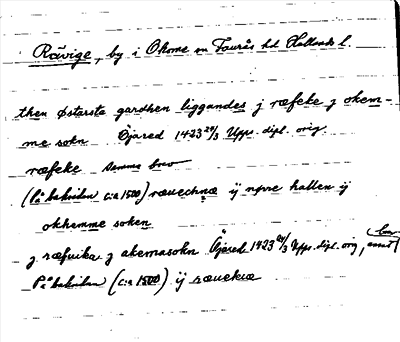 Rävige, by i Okome sn Faurås hd Hallands l.
then østarsta gardhen liggandes j ræfeke j okem-
me sokn Öjared 1423 29/3 Upps. dipl. orig.
ræfeke samma brev
(På baksidan c:a 1500) rævechnæ ij npre hallen ij
okhemme soken
j ræfuika j akemasokn Öjared 1423 29/3 Upps. dipl. orig, annat brev
På baksidan (c:a 1500) ij rævekæ